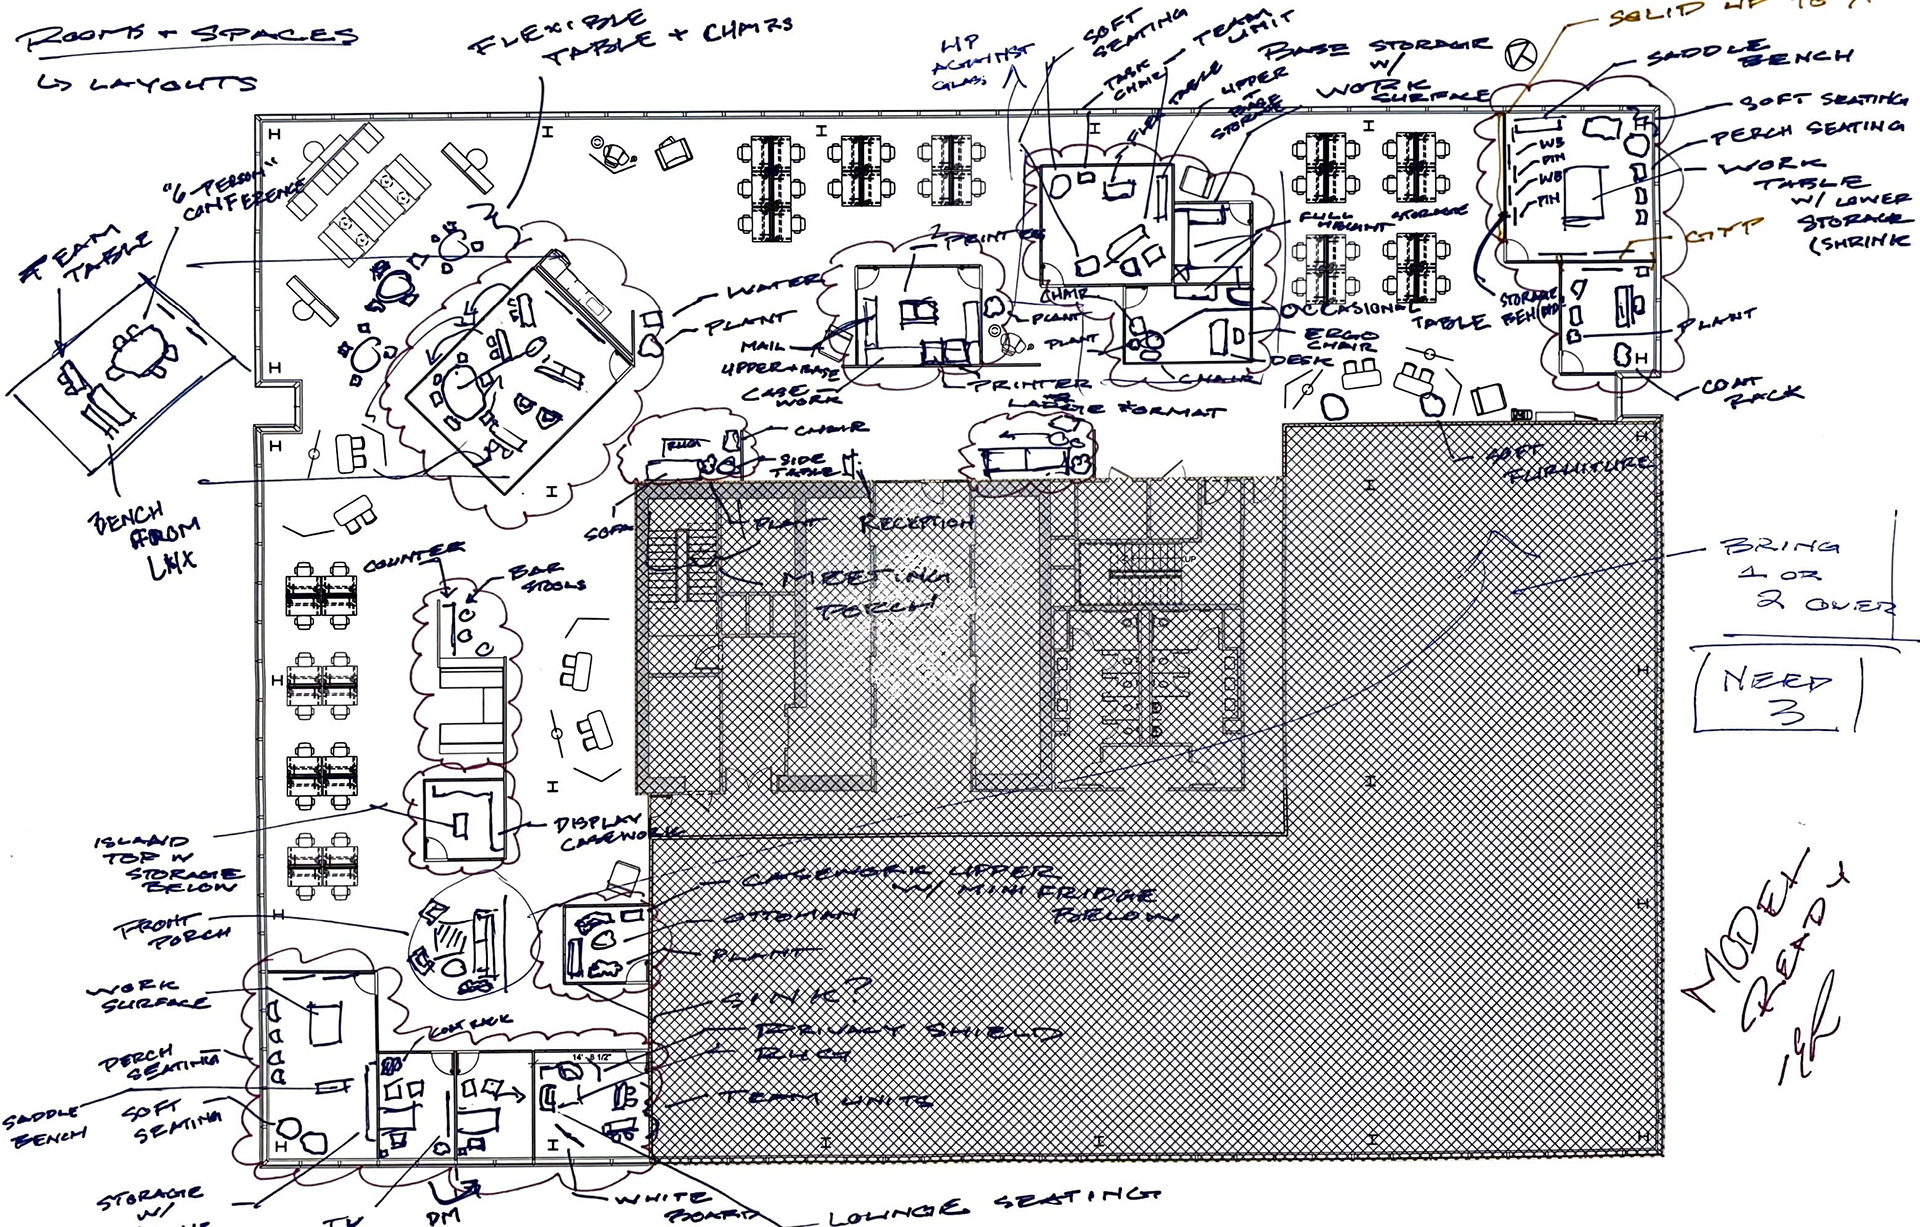 ROOMS + SPACES
↳ LAYOUTS
FLEXIBLE
TABLE + CHAIRS
UP
AGAINST
GLASS
SOFT
SEATING
TEAM
UNIT
TASK
CHAIR
TABLE
UPPER
+
BASE
STORAGE
BASE STORAGE
W/
WORK
SURFACE
SOLID UP TO
SADDLE
BENCH
SOFT SEATING
PERCH SEATING
WORK
TABLE
W/ LOWER
STORAGE
(SHRINK
WB
PIN
WB
PIN
GYP
"6-PERSON"
CONFERENCE
TEAM
TABLE
BENCH
FROM
WATER
PLANT
2 PRINTERS
MAIL
UPPER + BASE
CASE
WORK
PRINTER
LARGE FORMAT
PLANT
CHAIR
PLANT
CHAIR
FULL
HEIGHT
STORAGE
OCCASIONAL
TABLE
ERGO
CHAIR
DESK
STORAGE
BEHIND
PLANT
COAT
RACK
SOFT
FURNITURE
RUG
CHAIR
SIDE
TABLE
SOFA
PLANT
RECEPTION
MEETING
PORCH
UP
COUNTER
BAR
STOOLS
BRING
1 OR
2 OVER
NEED
3
ISLAND
TOP W
STORAGE
BELOW
DISPLAY
CASEWORK
FRONT
PORCH
CASEWORK UPPER
W/ MINI FRIDGE
BELOW
OTTOMAN
PLANT
SINK?
PRIVACY SHIELD
RUG
TEAM UNITS
WORK
SURFACE
COAT RACK
14'-8 1/2"
PERCH
SEATING
SADDLE
BENCH
SOFT
SEATING
STORAGE
W/
TK
DM
WHITE
BOARD
LOUNGE SEATING
READY